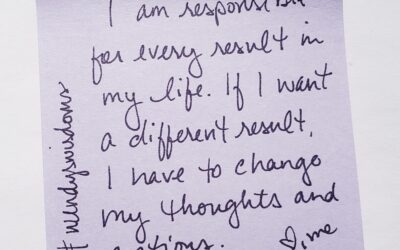 I am responsible
for every result in
my life. If I want
a different result,
I have to change
my thoughts and
actions. ♡, me
#wendyswisdoms